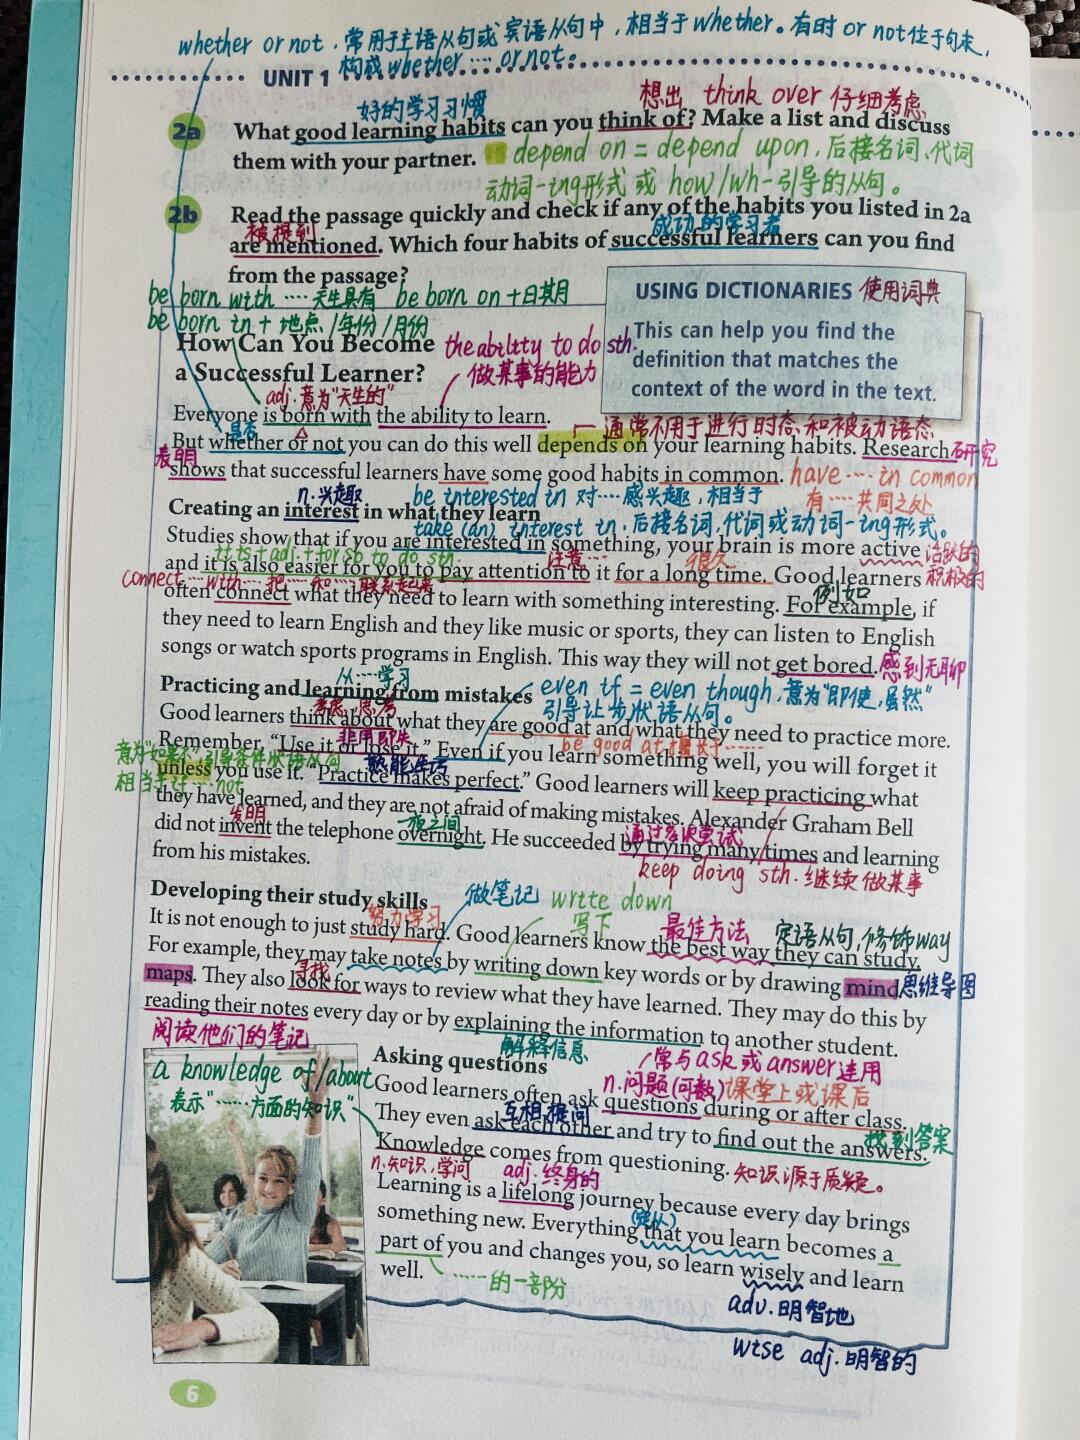 whether or not，常用于主语从句或宾语从句中，相当于whether。有时or not位于句末，
构成whether……or not。
UNIT 1
好的学习习惯
想出 think over 仔细考虑
2a What good learning habits can you think of? Make a list and discuss
them with your partner.
depend on = depend upon，后接名词、代词
动词-ing形式 或 how/wh-引导的从句。
2b Read the passage quickly and check if any of the habits you listed in 2a
被提到
成功的学习者
are mentioned. Which four habits of successful learners can you find
from the passage?
be born with……天生具有 be born on+日期
be born in+地点/年份/月份
USING DICTIONARIES 使用词典
This can help you find the
definition that matches the
context of the word in the text.
How Can You Become
a Successful Learner?
the ability to do sth.
做某事的能力
adj.意为“天生的”
Everyone is born with the ability to learn.
通常不用于进行时态和被动语态
是否
But whether or not you can do this well depends on your learning habits. Research 研究
表明
shows that successful learners have some good habits in common.
have……in common
有……共同之处
n.兴趣
be interested in 对……感兴趣，相当于
Creating an interest in what they learn
take (an) interest in，后接名词、代词或动词-ing形式。
Studies show that if you are interested in something, your brain is more active 活跃的
积极的
it is+adj.+for sb to do sth.
注意……
很久
and it is also easier for you to pay attention to it for a long time. Good learners
connect……with……把……和……联系起来
例如
often connect what they need to learn with something interesting. For example, if
they need to learn English and they like music or sports, they can listen to English
songs or watch sports programs in English. This way they will not get bored. 感到无聊
从……学习
Practicing and learning from mistakes
even if = even though，意为“即使，虽然”
引导让步状语从句。
考虑，思考
Good learners think about what they are good at and what they need to practice more.
非用即失
be good at 擅长……
Remember, “Use it or lose it.” Even if you learn something well, you will forget it
意为“如果不”，引导条件状语从句
相当于if……not
熟能生巧
unless you use it. “Practice makes perfect.” Good learners will keep practicing what
they have learned, and they are not afraid of making mistakes. Alexander Graham Bell
发明
一夜之间
通过多次尝试
did not invent the telephone overnight. He succeeded by trying many times and learning
from his mistakes.
keep doing sth. 继续做某事
Developing their study skills
做笔记
write down
写下
努力学习
最佳方法
定语从句，修饰way
It is not enough to just study hard. Good learners know the best way they can study.
For example, they may take notes by writing down key words or by drawing mind 思维导图
寻找
maps. They also look for ways to review what they have learned. They may do this by
reading their notes every day or by explaining the information to another student.
阅读他们的笔记
解释信息
Asking questions
常与ask或answer连用
n.问题(可数) 课堂上或课后
a knowledge of/about
表示“……方面的知识”
Good learners often ask questions during or after class.
互相提问
找到答案
They even ask each other and try to find out the answers.
Knowledge comes from questioning. 知识源于质疑。
n.知识，学问
adj.终身的
Learning is a lifelong journey because every day brings
(定从)
something new. Everything that you learn becomes a
part of you and changes you, so learn wisely and learn
well.
……的一部份
adv.明智地
wise adj.明智的
6